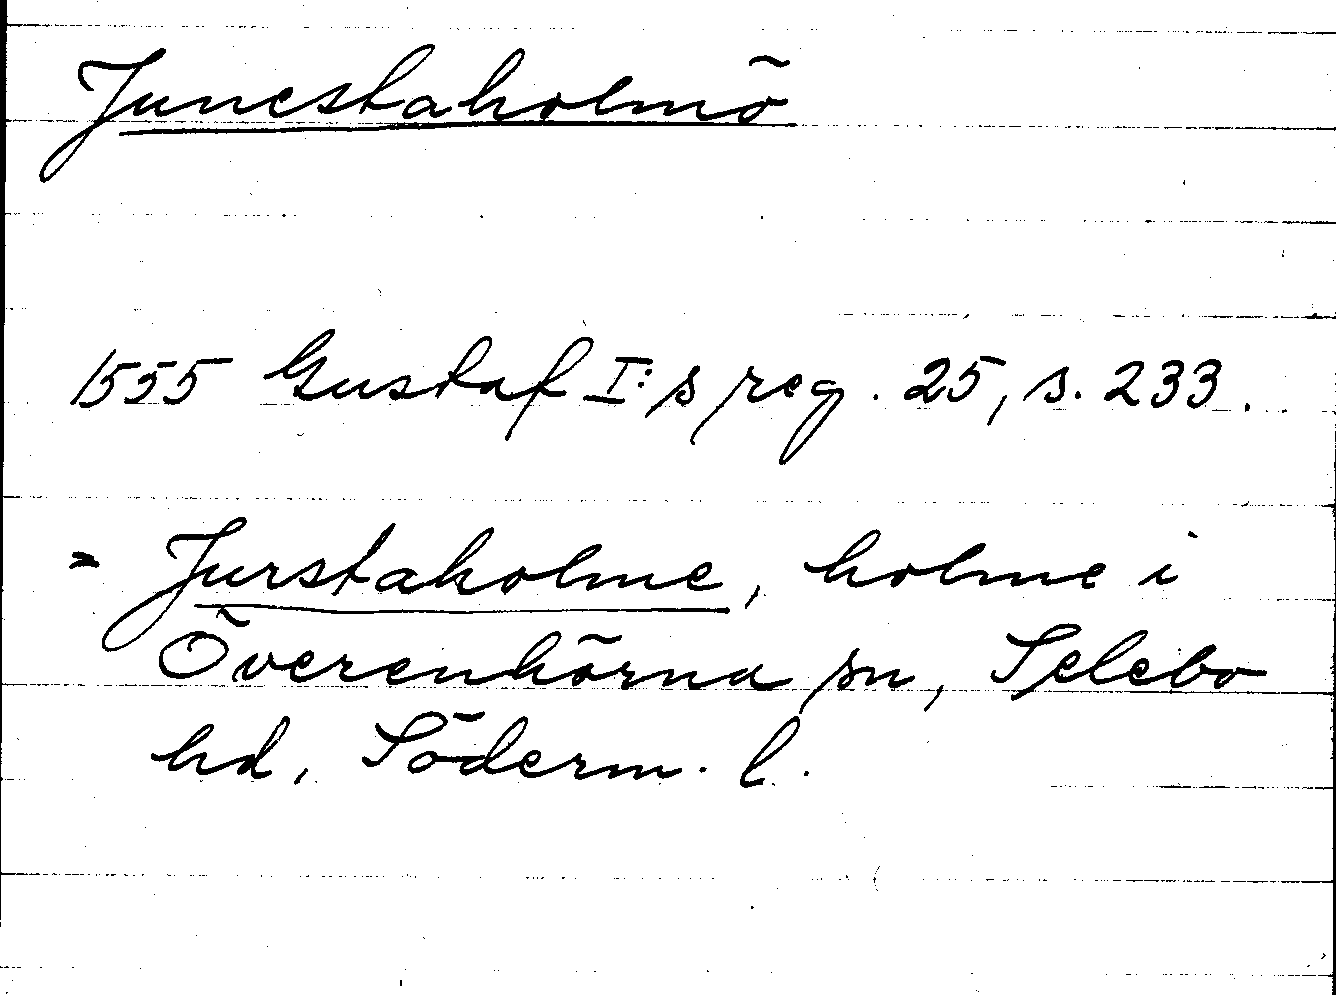 Junestaholmö
1555 Gustaf I:s reg. 25, s. 233.
= Jurstaholme, holme i
Överenhörna sn, Selebo
hd, Söderm. l.